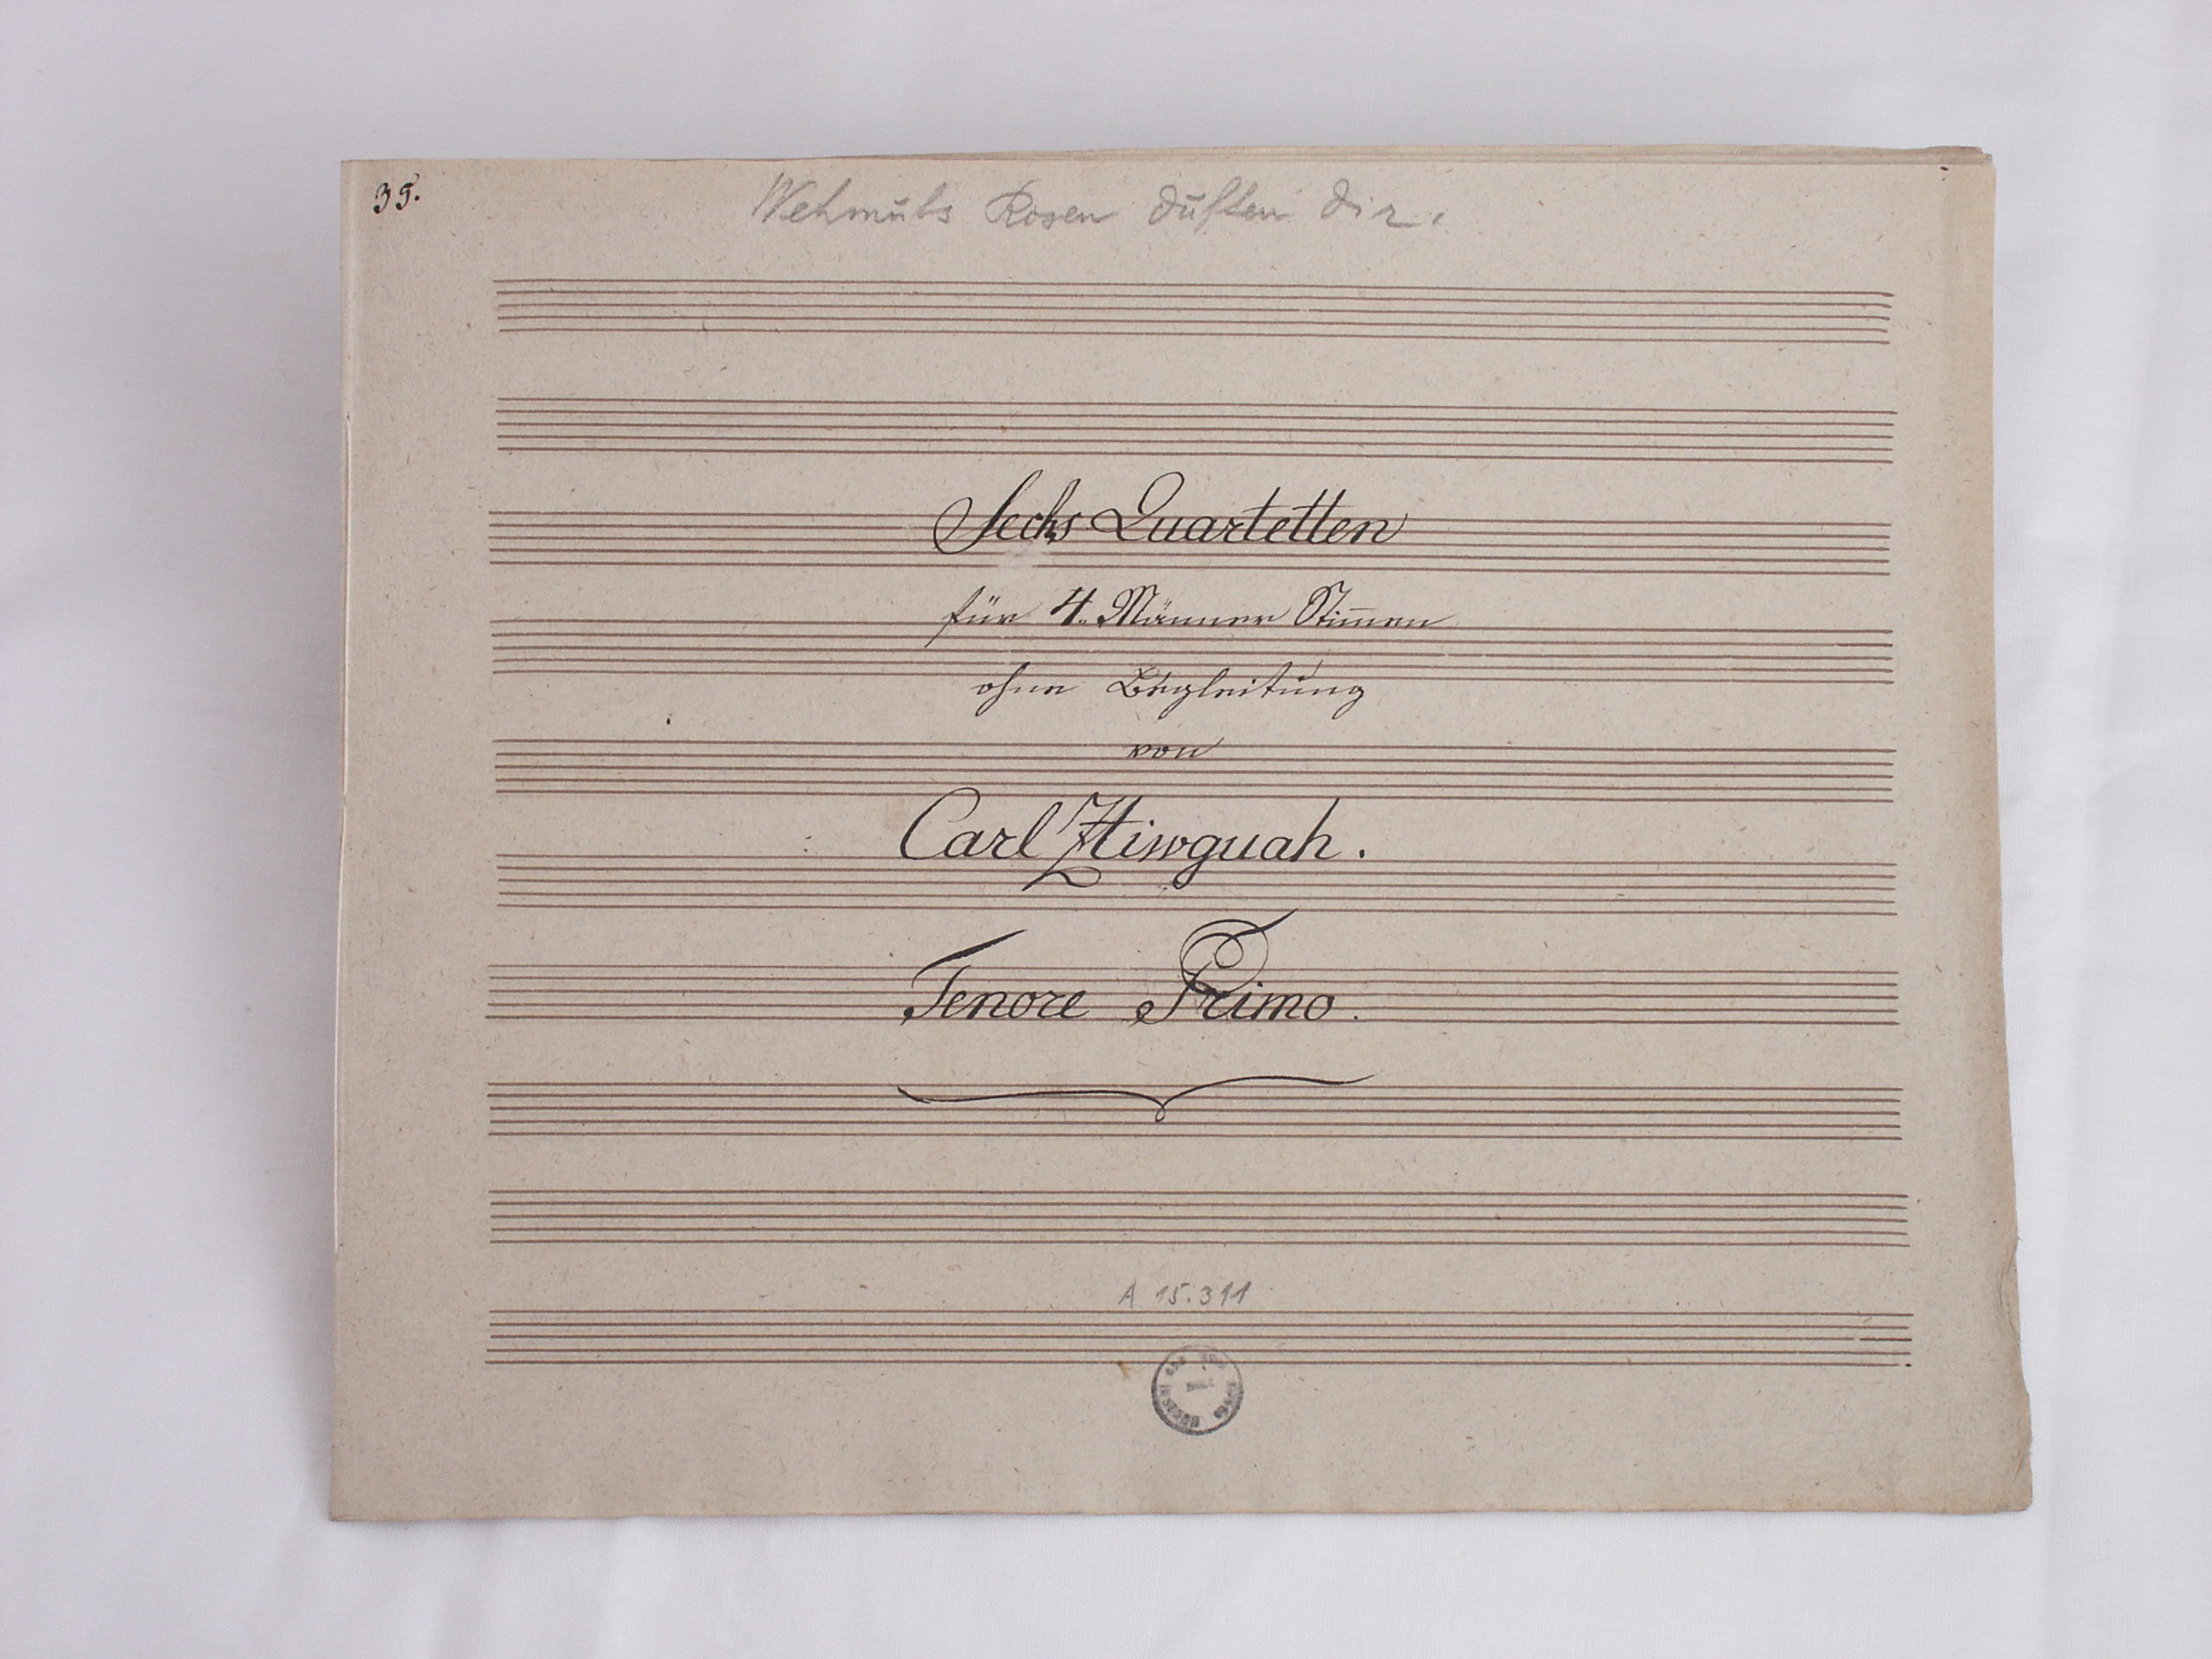 35.
Wehmuts Rosen duften dir.
Sechs Quartetten
für 4. Männer Stimmen
ohne Begleitung
von
Carl Hiwguah.
Tenore Primo.
A 15.311